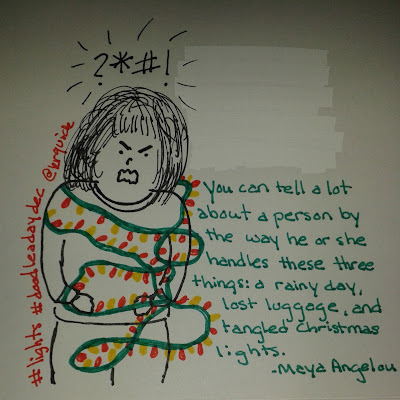 ?*#!
You can tell a lot
about a person by
the way he or she
handles these three
things: a rainy day,
lost luggage, and
tangled Christmas
lights.
-Maya Angelou
#lights #doodleadaydec @krguide